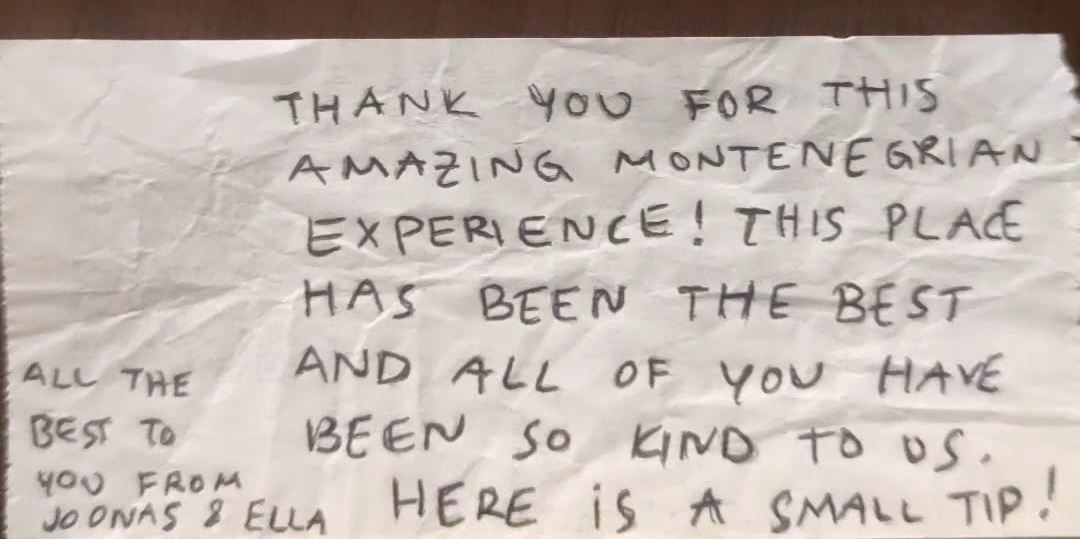 THANK YOU FOR THIS
AMAZING MONTENEGRIAN
EXPERIENCE! THIS PLACE
HAS BEEN THE BEST
AND ALL OF YOU HAVE
BEEN SO KIND TO US.
HERE iS A SMALL TIP!
ALL THE
BEST TO
YOU FROM
JOONAS & ELLA